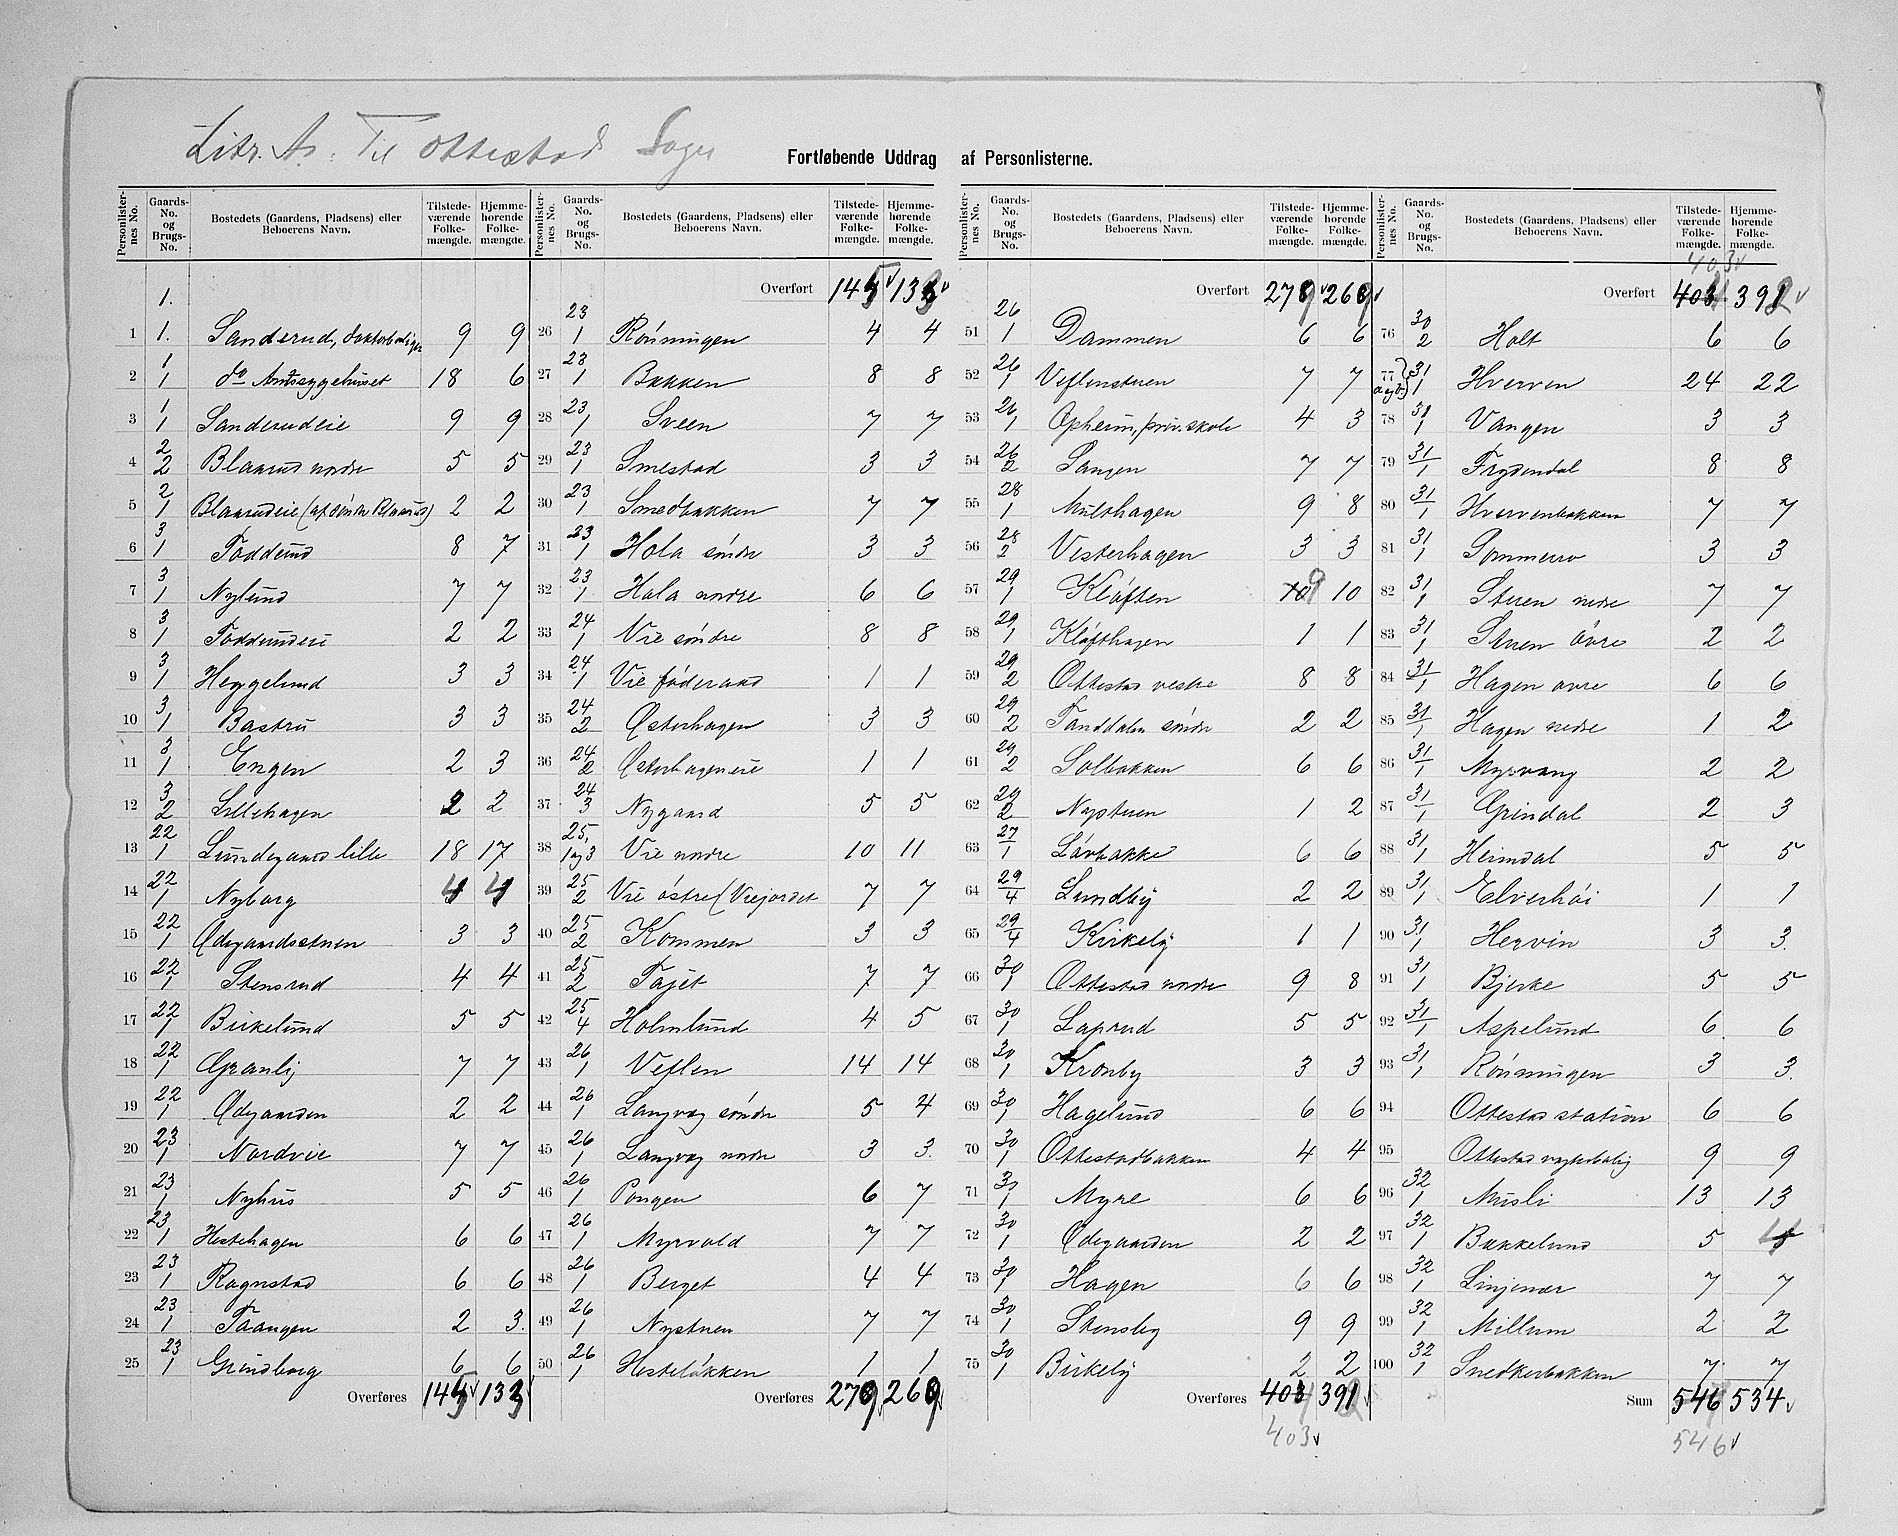 Litr. A. Til Ottestad Sogn
Fortløbende Uddrag af Personlisterne.
Personlister-nes No. Gaards-No. og Brugs-No. Bostedets (Gaardens, Pladsens) eller Beboerens Navn. Tilstede-værende Folke-mængde. Hjemme-hørende Folke-mængde.
1.
1 1. Sanderud, doktorboligen 9 9
2 1/1 do Amtssygehuset 18 6
3 1/1 Sanderudeie 9 9
4 2/2 Blaarud nordre 5 5
5 2/1 Blaarudeie (af søndre Blaarud) 2 2
6 3/1 Toddrud 8 7
7 3/1 Nylund 7 7
8 3/1 Toddrudeie 2 2
9 3/1 Heggelund 3 3
10 3/1 Bastru 3 3
11 3/1 Engen 2 3
12 3/2 Lillehagen 2 2
13 22/1 Lundgaard lille 18 17
14 22/1 Nyborg 4 4
15 22/1 Ødegaardsstuen 3 3
16 22/1 Stensrud 4 4
17 22/1 Birkelund 5 5
18 22/1 Granli 7 7
19 22/1 Ødegaarden 2 2
20 23/1 Nordvie 7 7
21 23/1 Nyhus 5 5
22 23/1 Hestehagen 6 6
23 23/1 Rognstad 6 6
24 23/1 Taangen 2 3
25 23/1 Grindborg 6 6
Overføres 145 133
Personlister-nes No. Gaards-No. og Brugs-No. Bostedets (Gaardens, Pladsens) eller Beboerens Navn. Tilstede-værende Folke-mængde. Hjemme-hørende Folke-mængde.
Overført 145 133
26 23/1 Rønningen 4 4
27 23/1 Bakken 8 8
28 23/1 Sveen 7 7
29 23/1 Smestad 3 3
30 23/1 Smedbakken 7 7
31 23/1 Hola søndre 3 3
32 23/1 Hola nordre 6 6
33 24/1 Vie søndre 8 8
34 24/1 Vie føderaad 1 1
35 24/2 Østerhagen 3 3
36 24/2 Østerhageneie 1 1
37 24/3 Nygaard 5 5
38 25, 1 og 3 Vie nordre 10 11
39 25/2 Vie østre (Viejordet 7 7
40 25/2 Kommen 3 3
41 25/2 Tajet 7 7
42 25/4 Holmlund 4 5
43 26/1 Veflen 14 14
44 26/1 Langvag søndre 5 4
45 26/1 Langvag nordre 3 3
46 26/1 Pongen 6 7
47 26/1 Myrvold 7 7
48 26/1 Berget 4 4
49 26/1 Nystuen 7 7
50 26/1 Hesteløkken 1 1
Overføres 279 269
Personlister-nes No. Gaards-No. og Brugs-No. Bostedets (Gaardens, Pladsens) eller Beboerens Navn. Tilstede-værende Folke-mængde. Hjemme-hørende Folke-mængde.
Overført 279 269
51 26/1 Dammen 6 6
52 26/1 Veflenstuen 7 7
53 26/1 Opheim, priv. skole 4 3
54 26/2 Sangen 7 7
55 28/1 Multhagen 9 8
56 28/2 Vesterhagen 3 3
57 29/1 Kløften 10 9 10
58 29/1 Kløfthagen 1 1
59 29/2 Ottestad vestre 8 8
60 29/2 Tanddalen søndre 2 2
61 29/2 Solbakken 6 6
62 29/2 Nystuen 1 2
63 27/1 Løvbakke 6 6
64 29/4 Lundby 2 2
65 29/4 Kirkeby 1 1
66 30/1 Ottestad nordre 9 8
67 30/1 Laprud 5 5
68 30/1 Kronby 3 3
69 30/1 Hagelund 6 6
70 30/1 Ottestadbakken 4 4
71 30/1 Myre 6 6
72 30/1 Ødegaarden 2 2
73 30/1 Hagen 6 6
74 30/1 Stensby 9 9
75 30/1 Birkely 2 2
Overføres 403 391
403
Personlister-nes No. Gaards-No. og Brugs-No. Bostedets (Gaardens, Pladsens) eller Beboerens Navn. Tilstede-værende Folke-mængde. Hjemme-hørende Folke-mængde.
403
Overført 403 391
76 30/2 Holt 6 6
77 a og b 31/1 Hverven 24 22
78 31/1 Vangen 3 3
79 31/1 Frydendal 8 8
80 31/1 Hvervenbakken 7 7
81 31/1 Sommerro 3 3
82 31/1 Stuen nedre 7 7
83 31/1 Stuen øvre 2 2
84 31/1 Hagen øvre 6 6
85 31/1 Hagen nedre 1 2
86 31/1 Myrvang 2 2
87 31/1 Grindal 2 3
88 31/1 Heimdal 5 5
89 31/1 Elverhøi 1 1
90 31/1 Hervin 3 3
91 31/1 Bjerke 5 5
92 31/1 Aspelund 6 6
93 31/1 Rønningen 3 3
94 Ottestad station 6 6
95 Ottestad vogterbolig 9 9
96 32/1 Musli 13 13
97 32/1 Bakkelund 5 4
98 32/1 Linjenær 7 7
99 32/1 Millum 2 2
100 32/1 Snedkerbakken 7 7
Sum 546 534
546